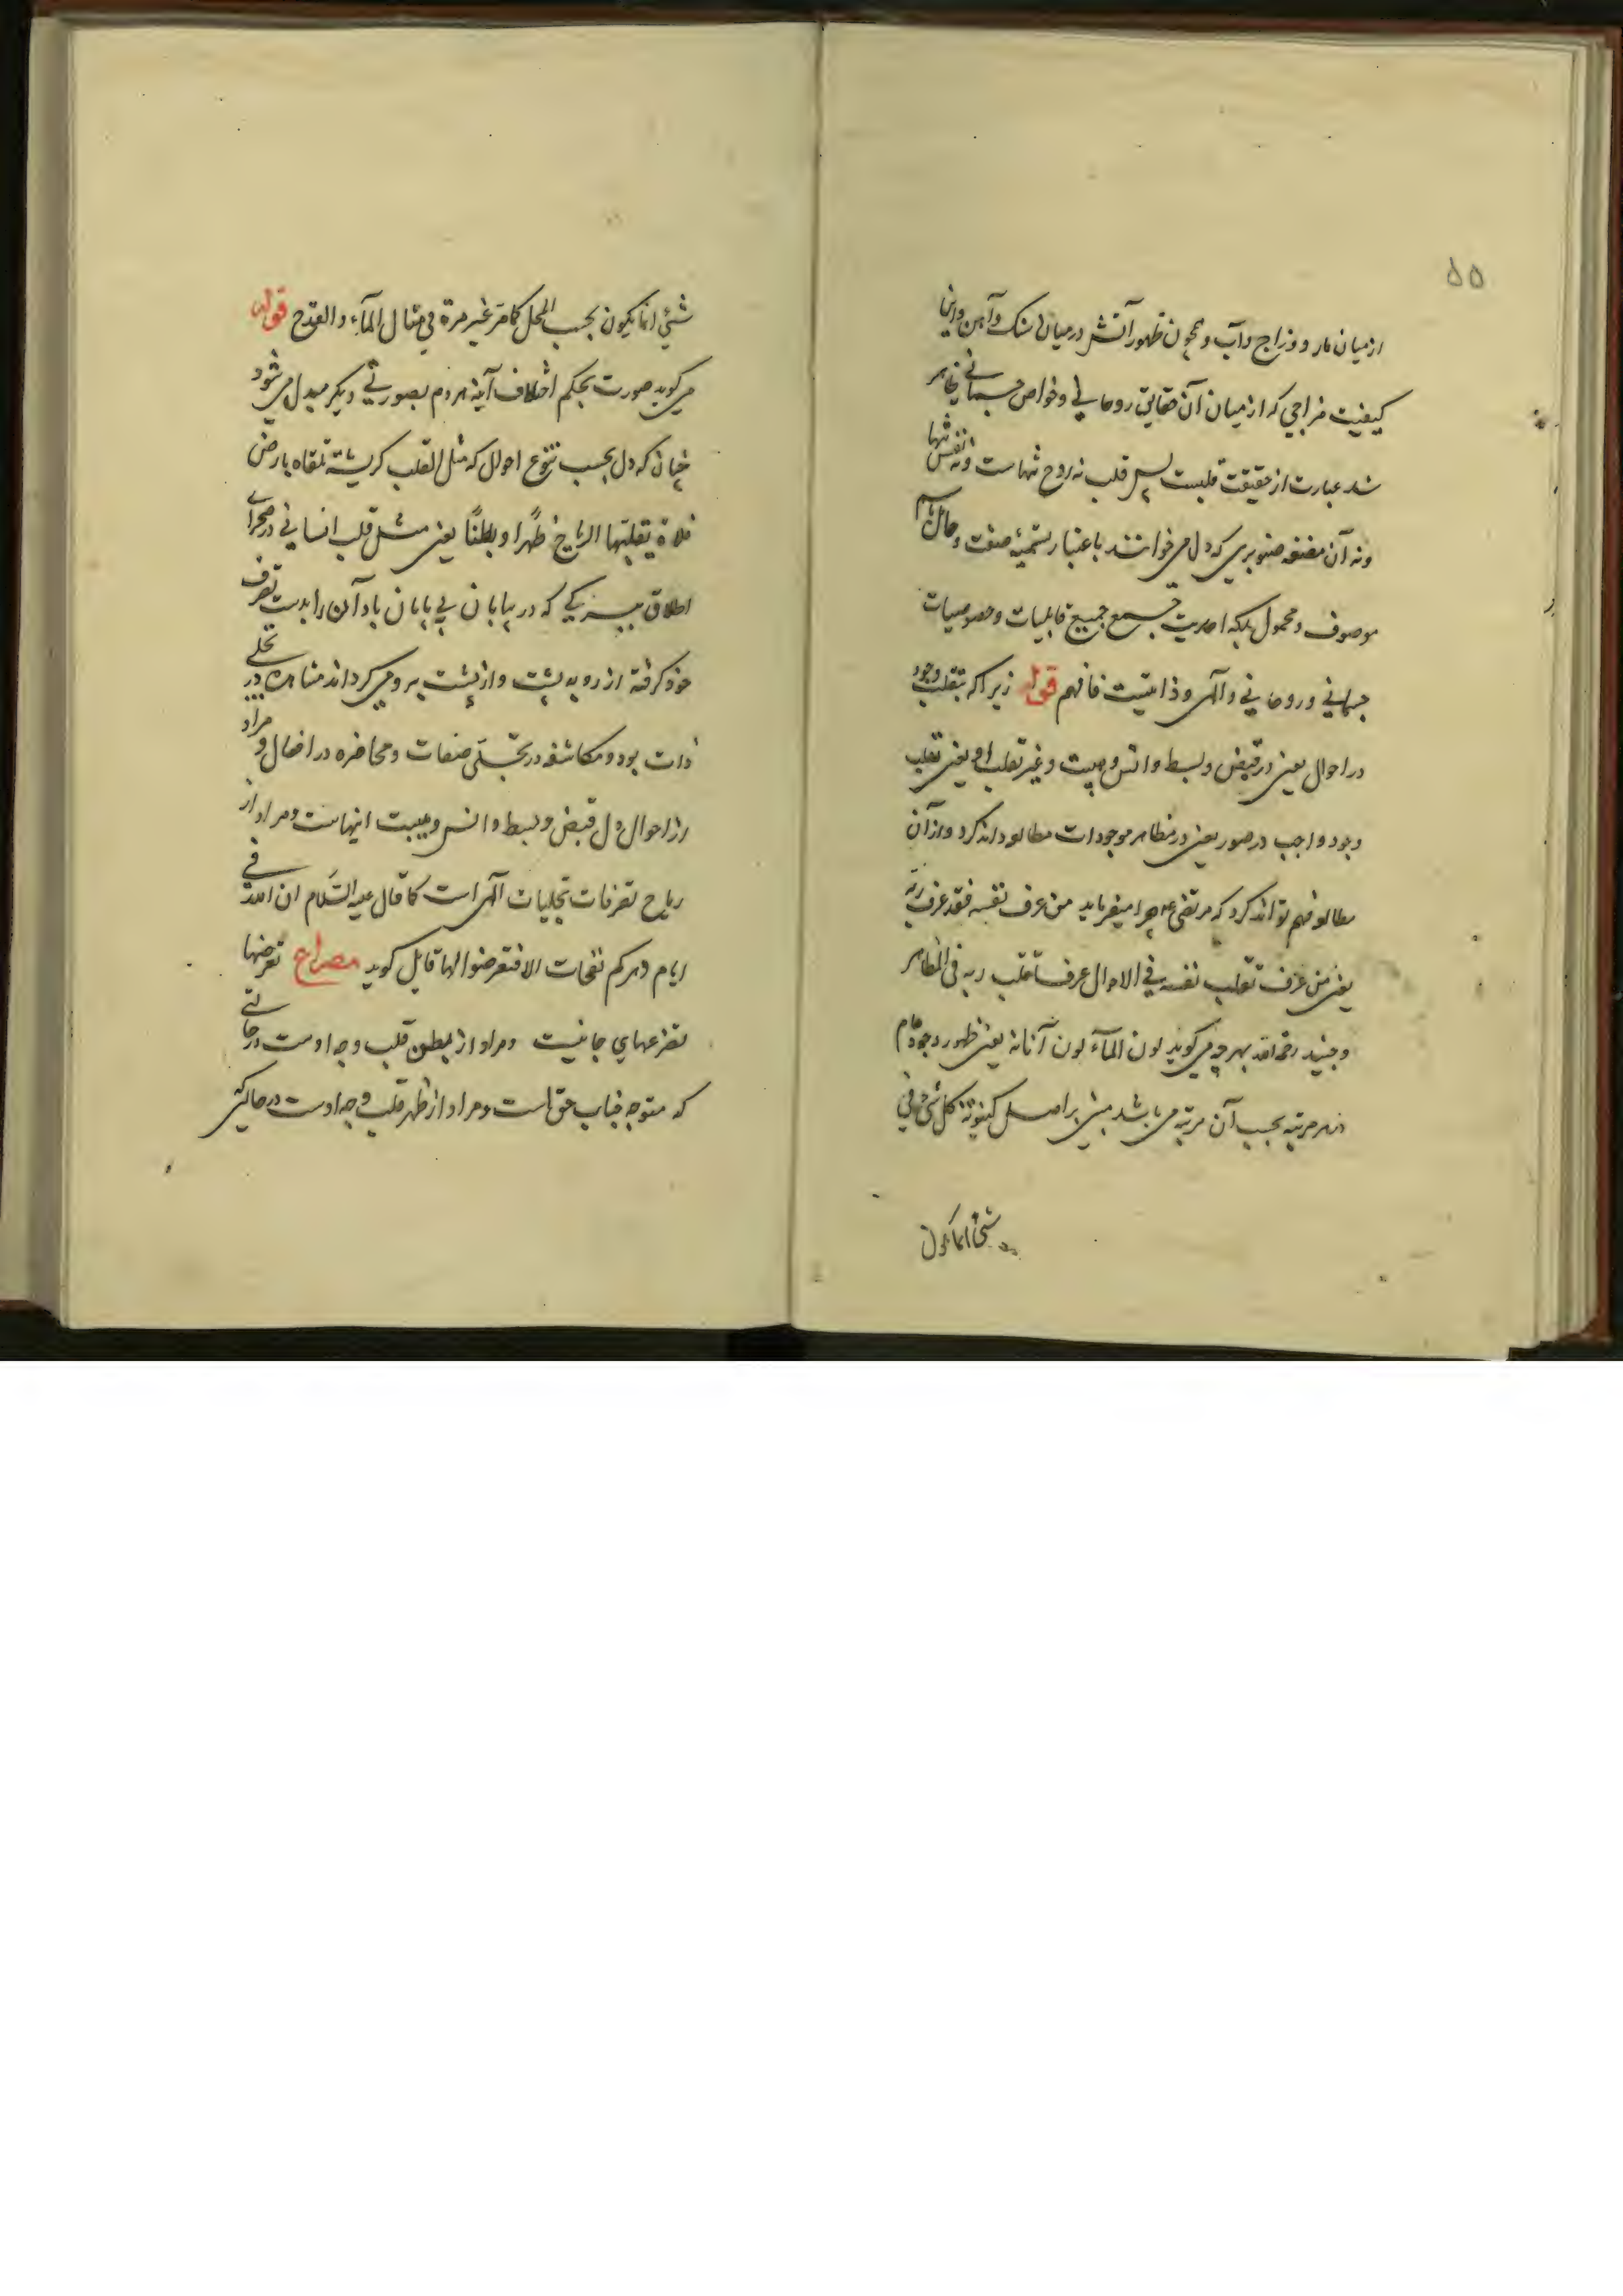 ۵۵
از میان مار و وزاج و آب و همچون ظهور آتش در میان سنک و آهن و اینا
کیفیت مزاجی که از میان آن حقایق روحانی و خواص جسمانی ظاهر
شد عبارت از حقیقت قلبست پس قلب نه روح تنهاست و نه نفس تنها
و نه آن مضغه صنوبری که دل می خوانند باعتبار تسمیهٔ صفت و حال باسم
موصوف و محمول بلکه احدیت جمع جمیع قابلیات و خصوصیات
جسمانی و روحانی و الهی و ذاتیست فافهم قوله زیرا که بتقلب وجود
در احوال یعنی در قبض و بسط و انس و هیبت و غیر تقلب او یعنی تقلب
وجود واجب در صور یعنی در مظاهر موجودات مطالعه داند کرد و از آن
مطالعه فهم تواند کرد که مرتضی ع م چرا میفرماید من عرف نفسه فقد عرف ربه
یعنی من عرف تقلب نفسه فی الاحوال عرف تقلب ربه فی المظاهر
و جنید رحمه الله بهر چه می کوید لون المآء لون آنائه یعنی ظهور وجود عام
در هر مرتبه بحسب آن مرتبه می باشد مبنی بر اصل کینونة کل شیء فی
شیء انما یکون
شیٔ انما یکون بحسب المحل کما مر غیر مرة فی مثال المآء و القدح قوله
می کوید صورت بحکم اختلاف آینه هر دم بصورتی دیکر مبدل می شود
چنان که دل بحسب تنوع احوال که مثل القلب کریشة ملقاة بارض
فلاة یقلبها الریاح ظهرا و بطنا یعنی مثل قلب انسانی در صحرای
اطلاق پریکی که در بیابان بی پایان باد آن را بدست تصرف
خود کرفته از رو به پشت و از پشت برو می کرداند مشاهده در تجلی
ذات بود و مکاشفه در تجلی صفات و محاضره در افعال و مراد
از احوال دل قبض و بسط و انس و هیبت اینهاست و مراد از
ریاح تصرفات تجلیات الهی است کما قال علیه السلام ان لله فی
ایام دهرکم نفحات الا فتعرضوا لها قایل کوید مصراع تعرضها
تضرعهای جانیست و مراد از بطن قلب وجه اوست در حالتی
که متوجه جناب حق است و مراد از ظهر قلب وجه اوست در حالی